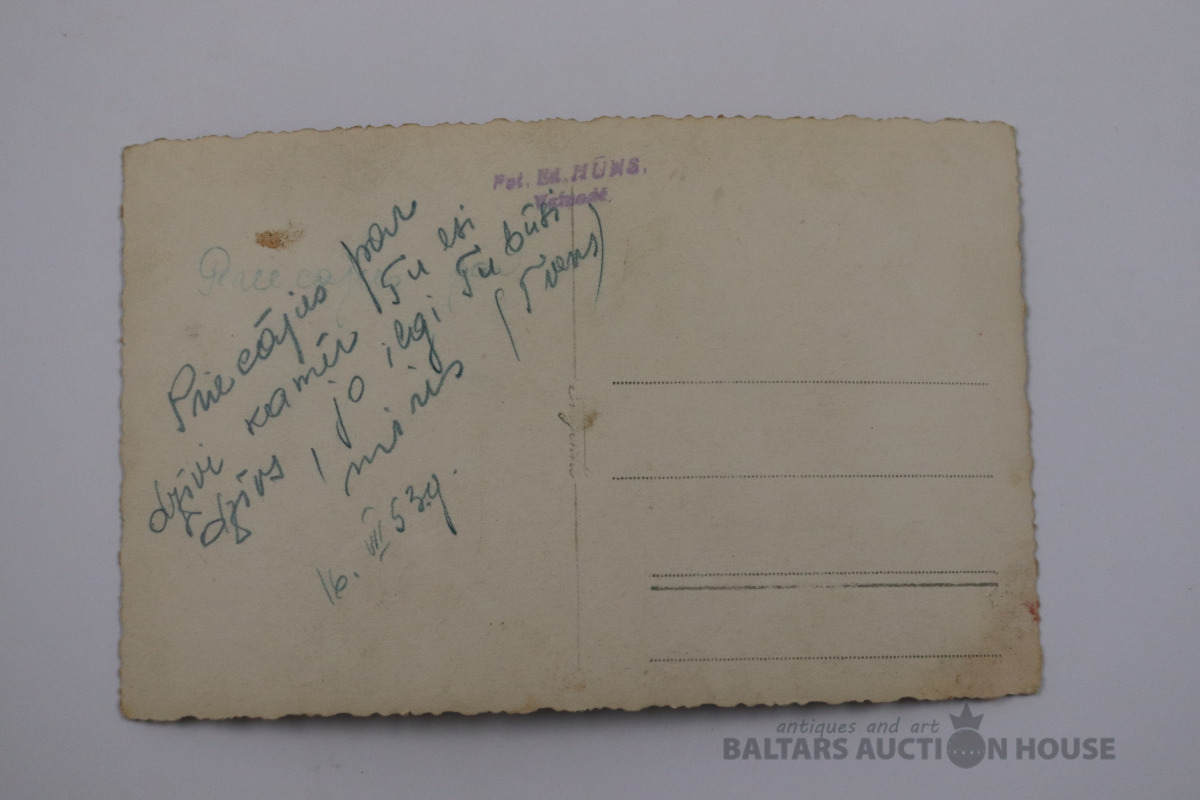 Fot. Ed. HŪNS.
Priecājies par
dzīvi kamēr Tu esi
dzīvs, jo ilgi Tu būsi
miris (Tvens)
16. VII 53.g.
antiques and art
BALTARS AUCTION HOUSE